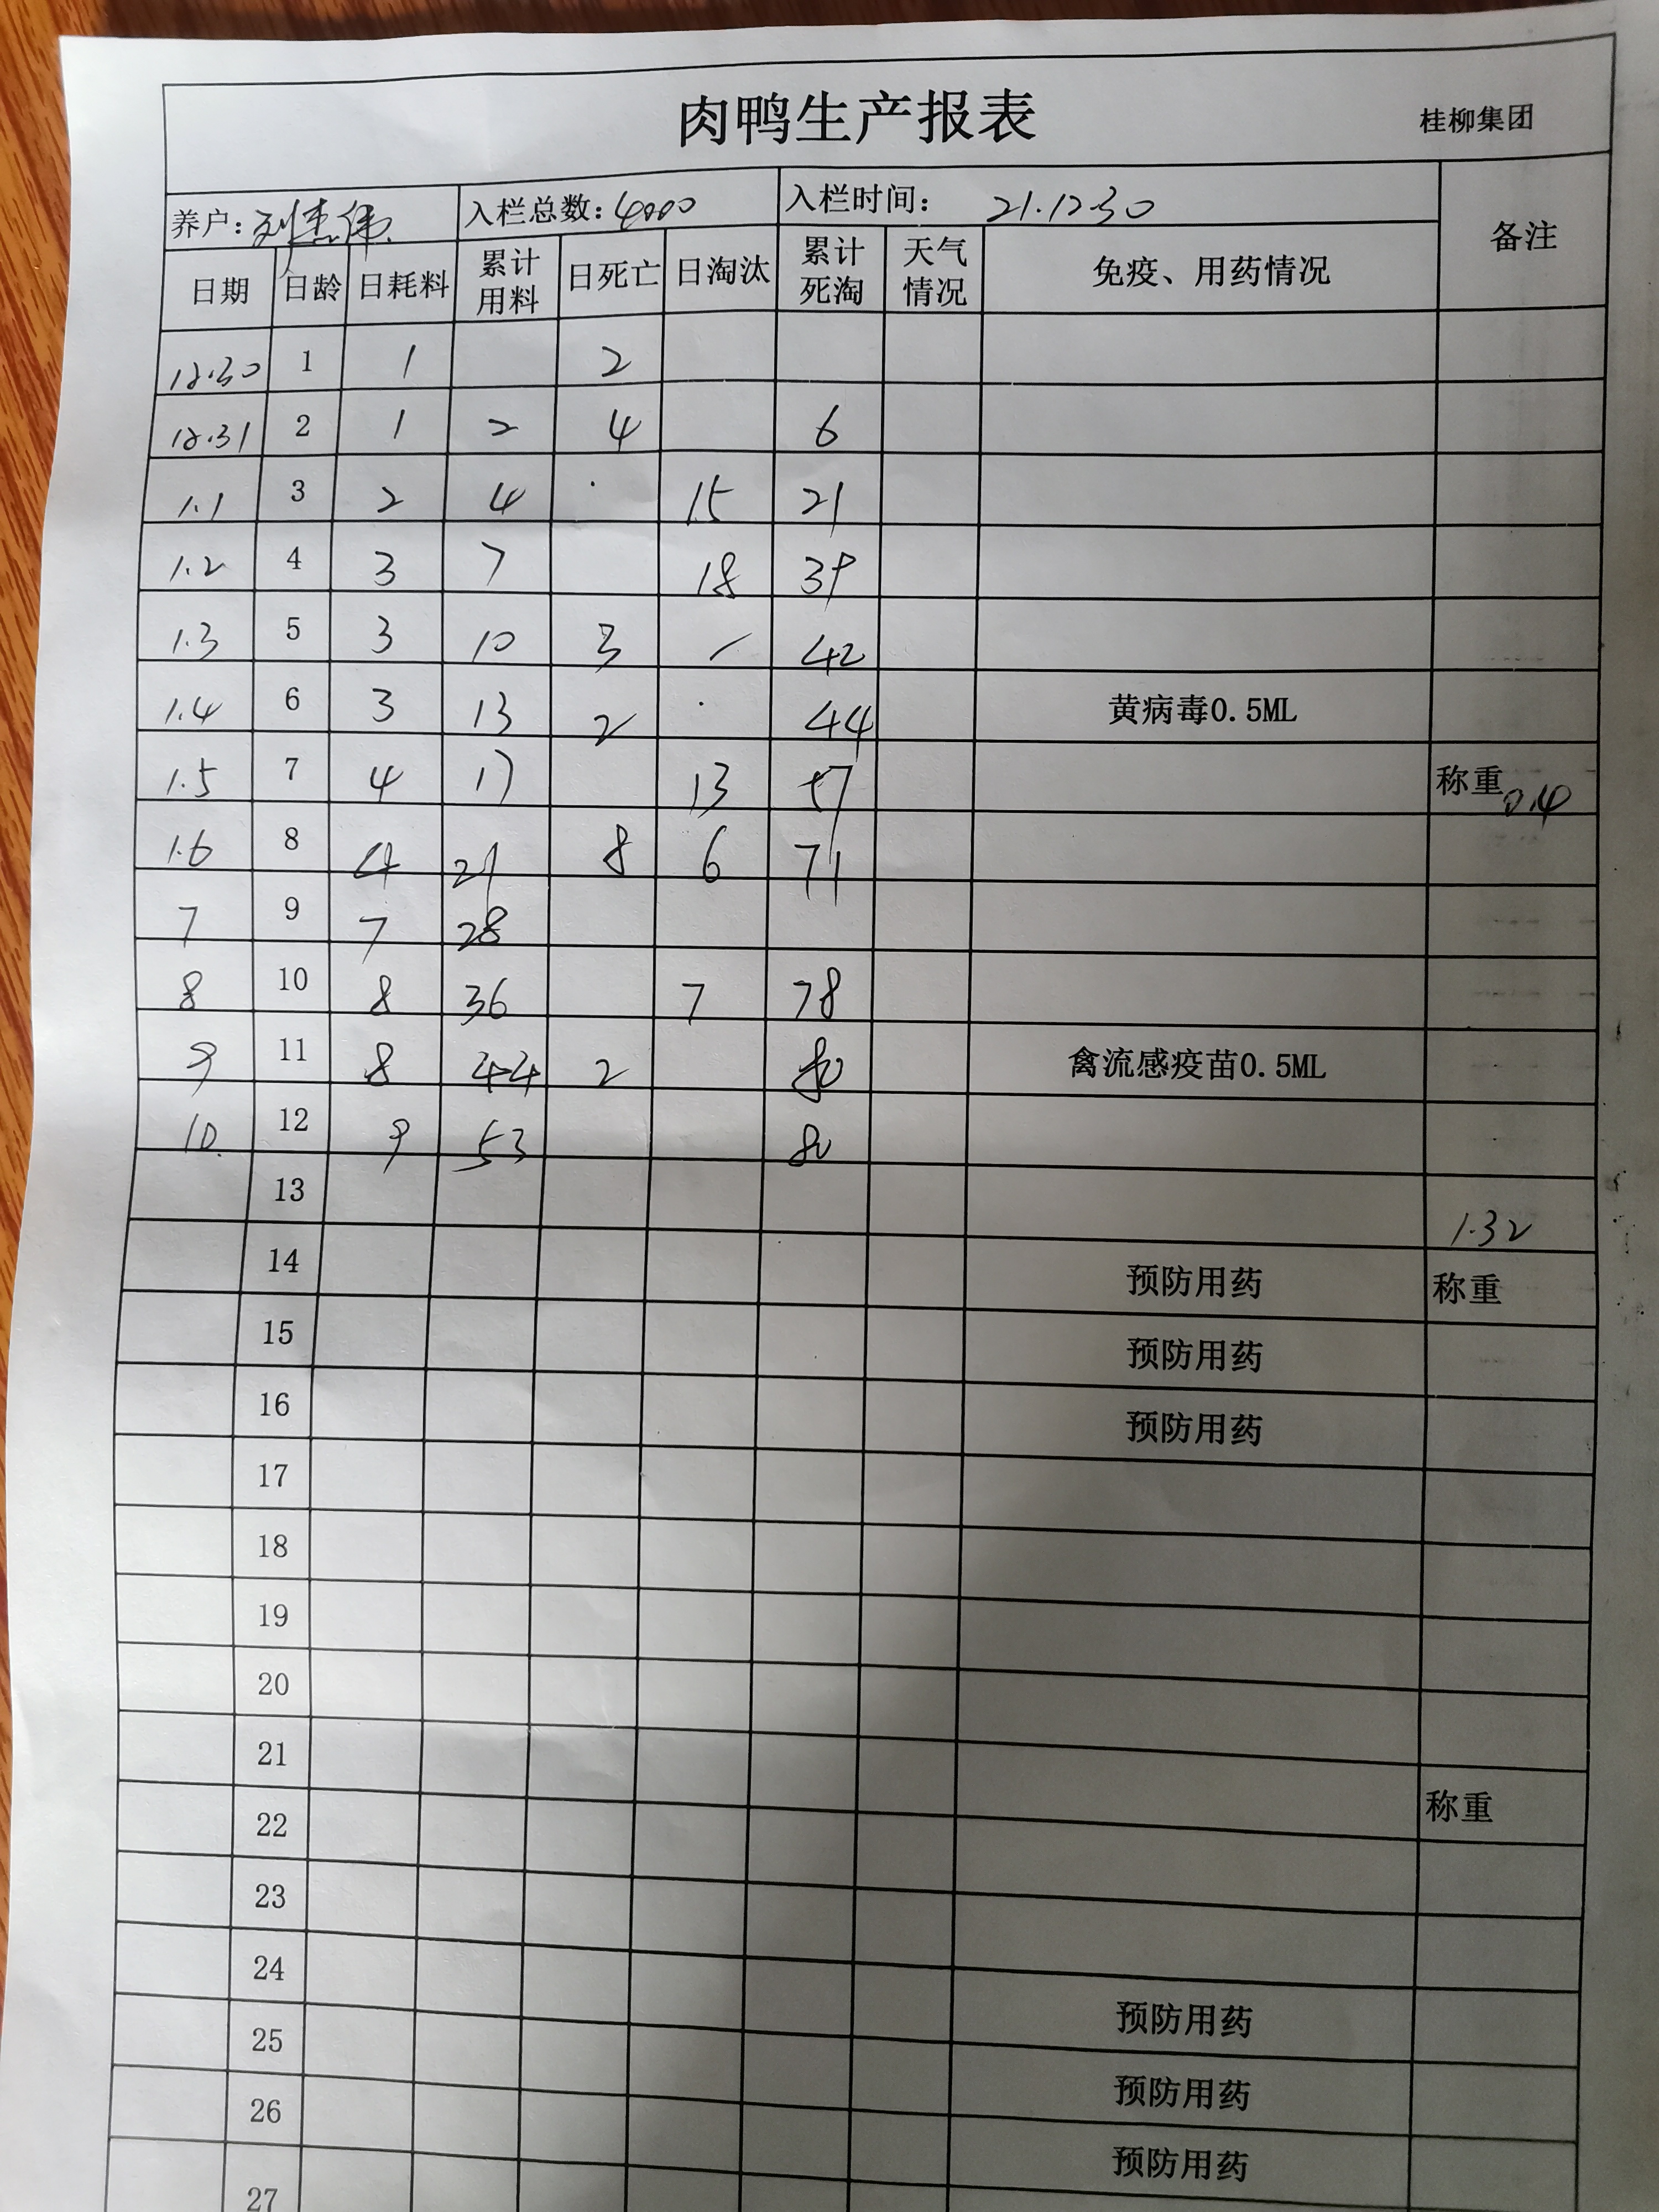 肉鸭生产报表 桂柳集团
养户: 刘杰伟 入栏总数: 4000 入栏时间: 21.12.30 备注
日期 日龄 日耗料 累计用料 日死亡 日淘汰 累计死淘 天气情况 免疫、用药情况
12.30 1 1 2
12.31 2 1 2 4 6
1.1 3 2 4 15 21
1.2 4 3 7 18 39
1.3 5 3 10 3 42
1.4 6 3 13 2 44 黄病毒0.5ML
1.5 7 4 17 13 57 称重
1.6 8 4 21 8 6 71
7 9 7 28
8 10 8 36 7 78
9 11 8 44 2 80 禽流感疫苗0.5ML
10 12 9 53 80
13 1.32
14 预防用药 称重
15 预防用药
16 预防用药
17
18
19
20
21
22 称重
23
24
25 预防用药
26 预防用药
27 预防用药